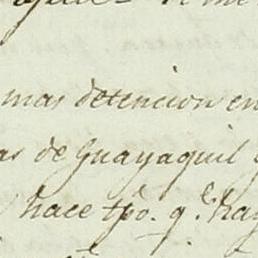 mas detencion en
as de Guayaquil
hace tpõ. q.e hay